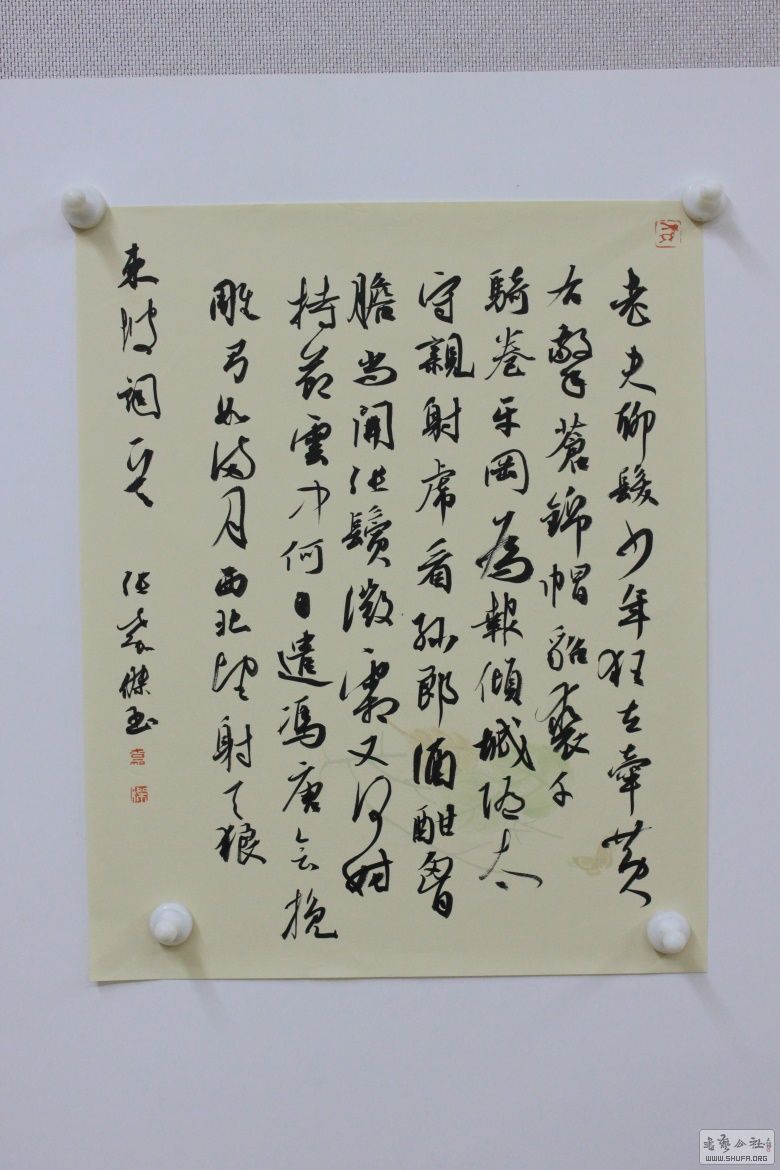 老夫聊發少年狂左牽黄
右擎蒼錦帽貂裘千
騎卷平岡為報傾城随太
守親射虎看孫郎酒酣胷
膽尚開張鬢微霜又何妨
持節雲中何日遣馮唐会挽
雕弓如滿月西北望射天狼
東坡詞一首 張嘉傑書
書藝公社
WWW.SHUFA.ORG